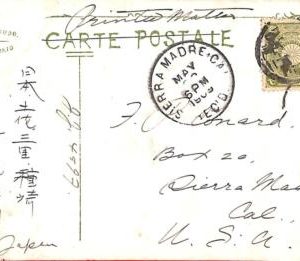 Printed Matter
CARTE POSTALE
SIERRA MADRE, CAL.
MAY
6 PM
1909
REC'D.
F. J. Conard.
Box 20,
Sierra Mad
Cal.,
U. S. A.
日本土佐三里種崎
Japan